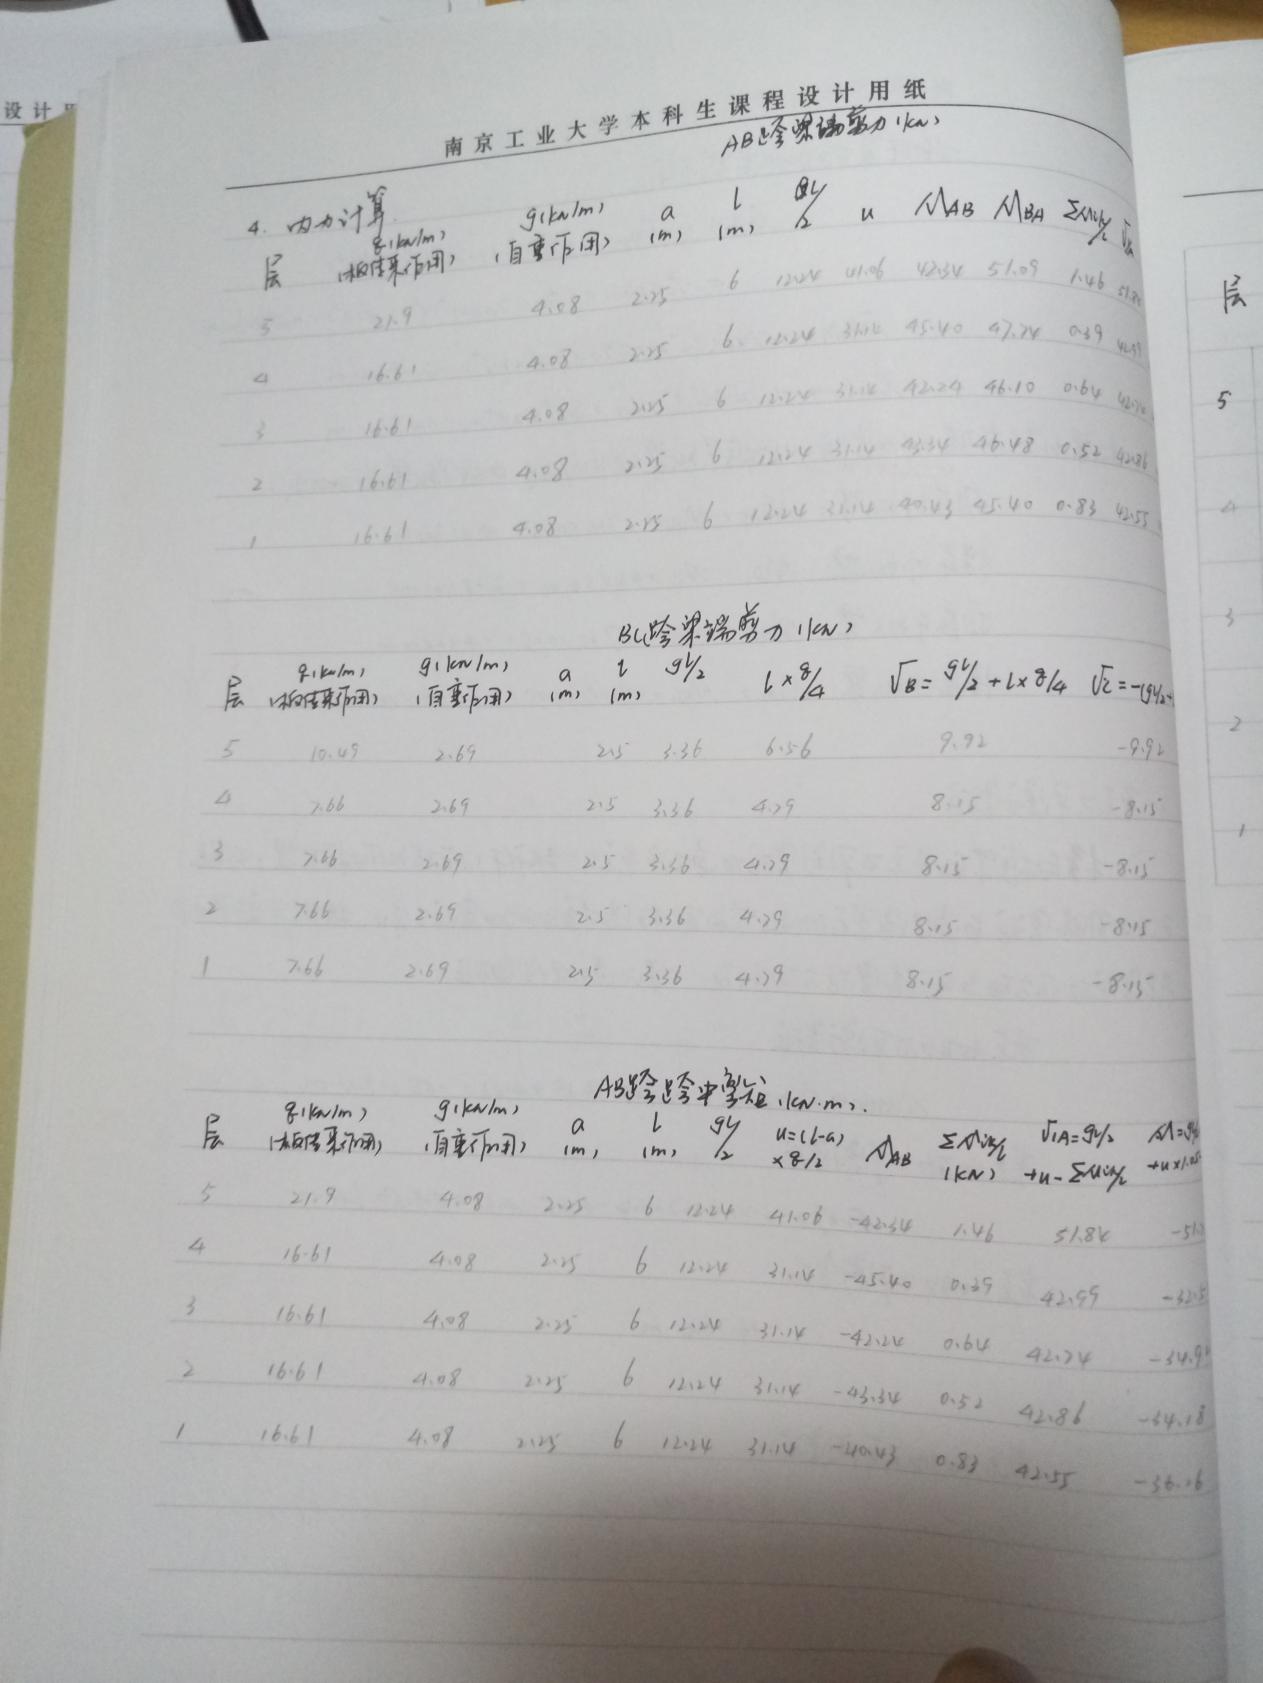 设计用
南京工业大学本科生课程设计用纸
AB跨梁端剪力(kN)
4. 内力计算.
层 q(kN/m) (板传来作用) g(kN/m) (自重作用) a (m) l (m) gl/2 u MAB MBA ΣMik/l
5 21.9 4.08 2.25 6 12.24 41.06 42.34 51.09 1.46 51.84
4 16.61 4.08 2.25 6 12.24 31.14 45.40 47.74 0.39 42.99
3 16.61 4.08 2.25 6 12.24 31.14 42.24 46.10 0.64 42.74
2 16.61 4.08 2.25 6 12.24 31.14 43.34 46.48 0.52 42.86
1 16.61 4.08 2.25 6 12.24 31.14 40.43 45.40 0.83 42.55
BC跨梁端剪力(kN)
层 q(kN/m) (板传来作用) g(kN/m) (自重作用) a (m) l (m) gl/2 l×q/4 VB=gl/2+l×q/4
5 10.49 2.69 2.5 3.36 6.56 9.92 -9.92
4 7.66 2.69 2.5 3.36 4.79 8.15 -8.15
3 7.66 2.69 2.5 3.36 4.79 8.15 -8.15
2 7.66 2.69 2.5 3.36 4.79 8.15 -8.15
1 7.66 2.69 2.5 3.36 4.79 8.15 -8.15
AB跨跨中弯矩(kN·m).
层 q(kN/m) (板传来作用) g(kN/m) (自重作用) a (m) l (m) gl/2 u=(l-a)×q/2 MAB ΣMik/l (kN) V1A=gl/2+u-ΣMik/l
5 21.9 4.08 2.25 6 12.24 41.06 -42.34 1.46 51.84
4 16.61 4.08 2.25 6 12.24 31.14 -45.40 0.39 42.99
3 16.61 4.08 2.25 6 12.24 31.14 -42.24 0.64 42.74
2 16.61 4.08 2.25 6 12.24 31.14 -43.34 0.52 42.86 -34.18
1 16.61 4.08 2.25 6 12.24 31.14 -40.43 0.83 42.55 -36.16
层
5
4
3
2
1